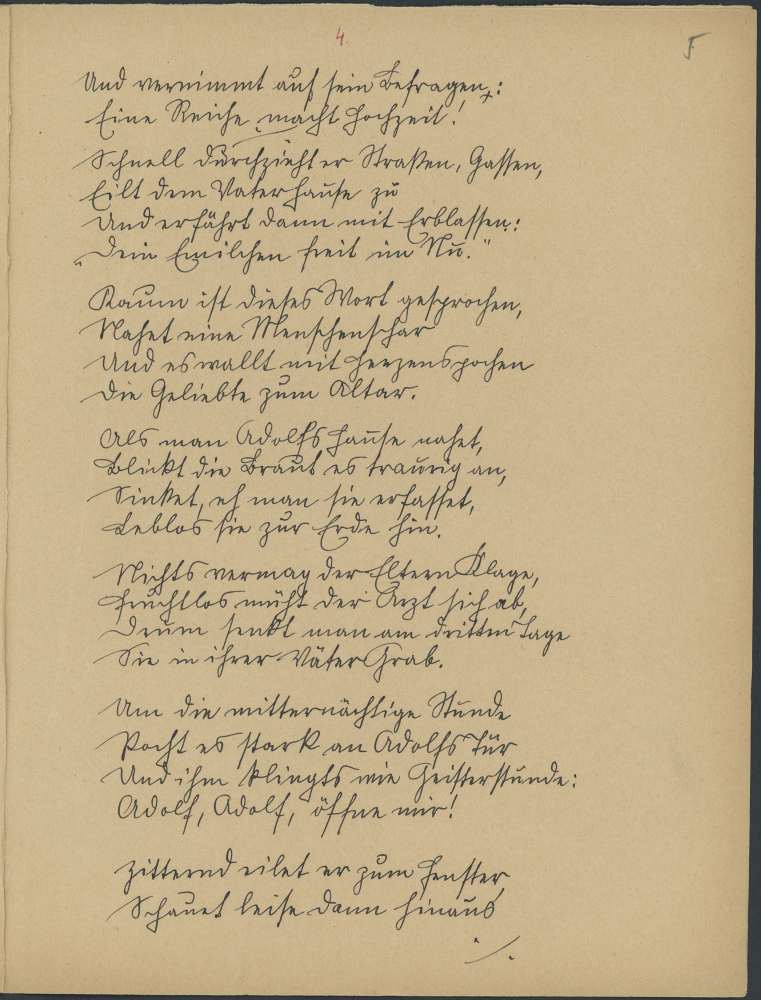 4.
5
Und vernimmt auf sein Befragen:
Eine Reiche macht Hochzeit!
Schnell durchzieht er Straßen, Gassen,
Eilt dem Vaterhause zu
Und erfährt dann mit Erblassen:
„Dein Emilchen freit im Nu."
Kaum ist dieses Wort gesprochen,
Nahet eine Menschenschar
Und es wallt mit Herzenspochen
Die Geliebte zum Altar.
Als man Adolfs Hause nahet,
Blickt die Braut es traurig an,
Sinket, eh man sie erfasset,
Leblos sie zur Erde hin.
Nichts vermag der Eltern Klage,
Fruchtlos müht der Arzt sich ab,
Drum senkt man am dritten Tage
Sie in ihrer Väter Grab.
Um die mitternächtige Stunde
Pocht es stark an Adolfs Tür
Und ihm klingts wie Geisterstunde:
Adolf, Adolf, öffne mir!
Zitternd eilet er zum Fenster,
Schauet leise dann hinaus
./.